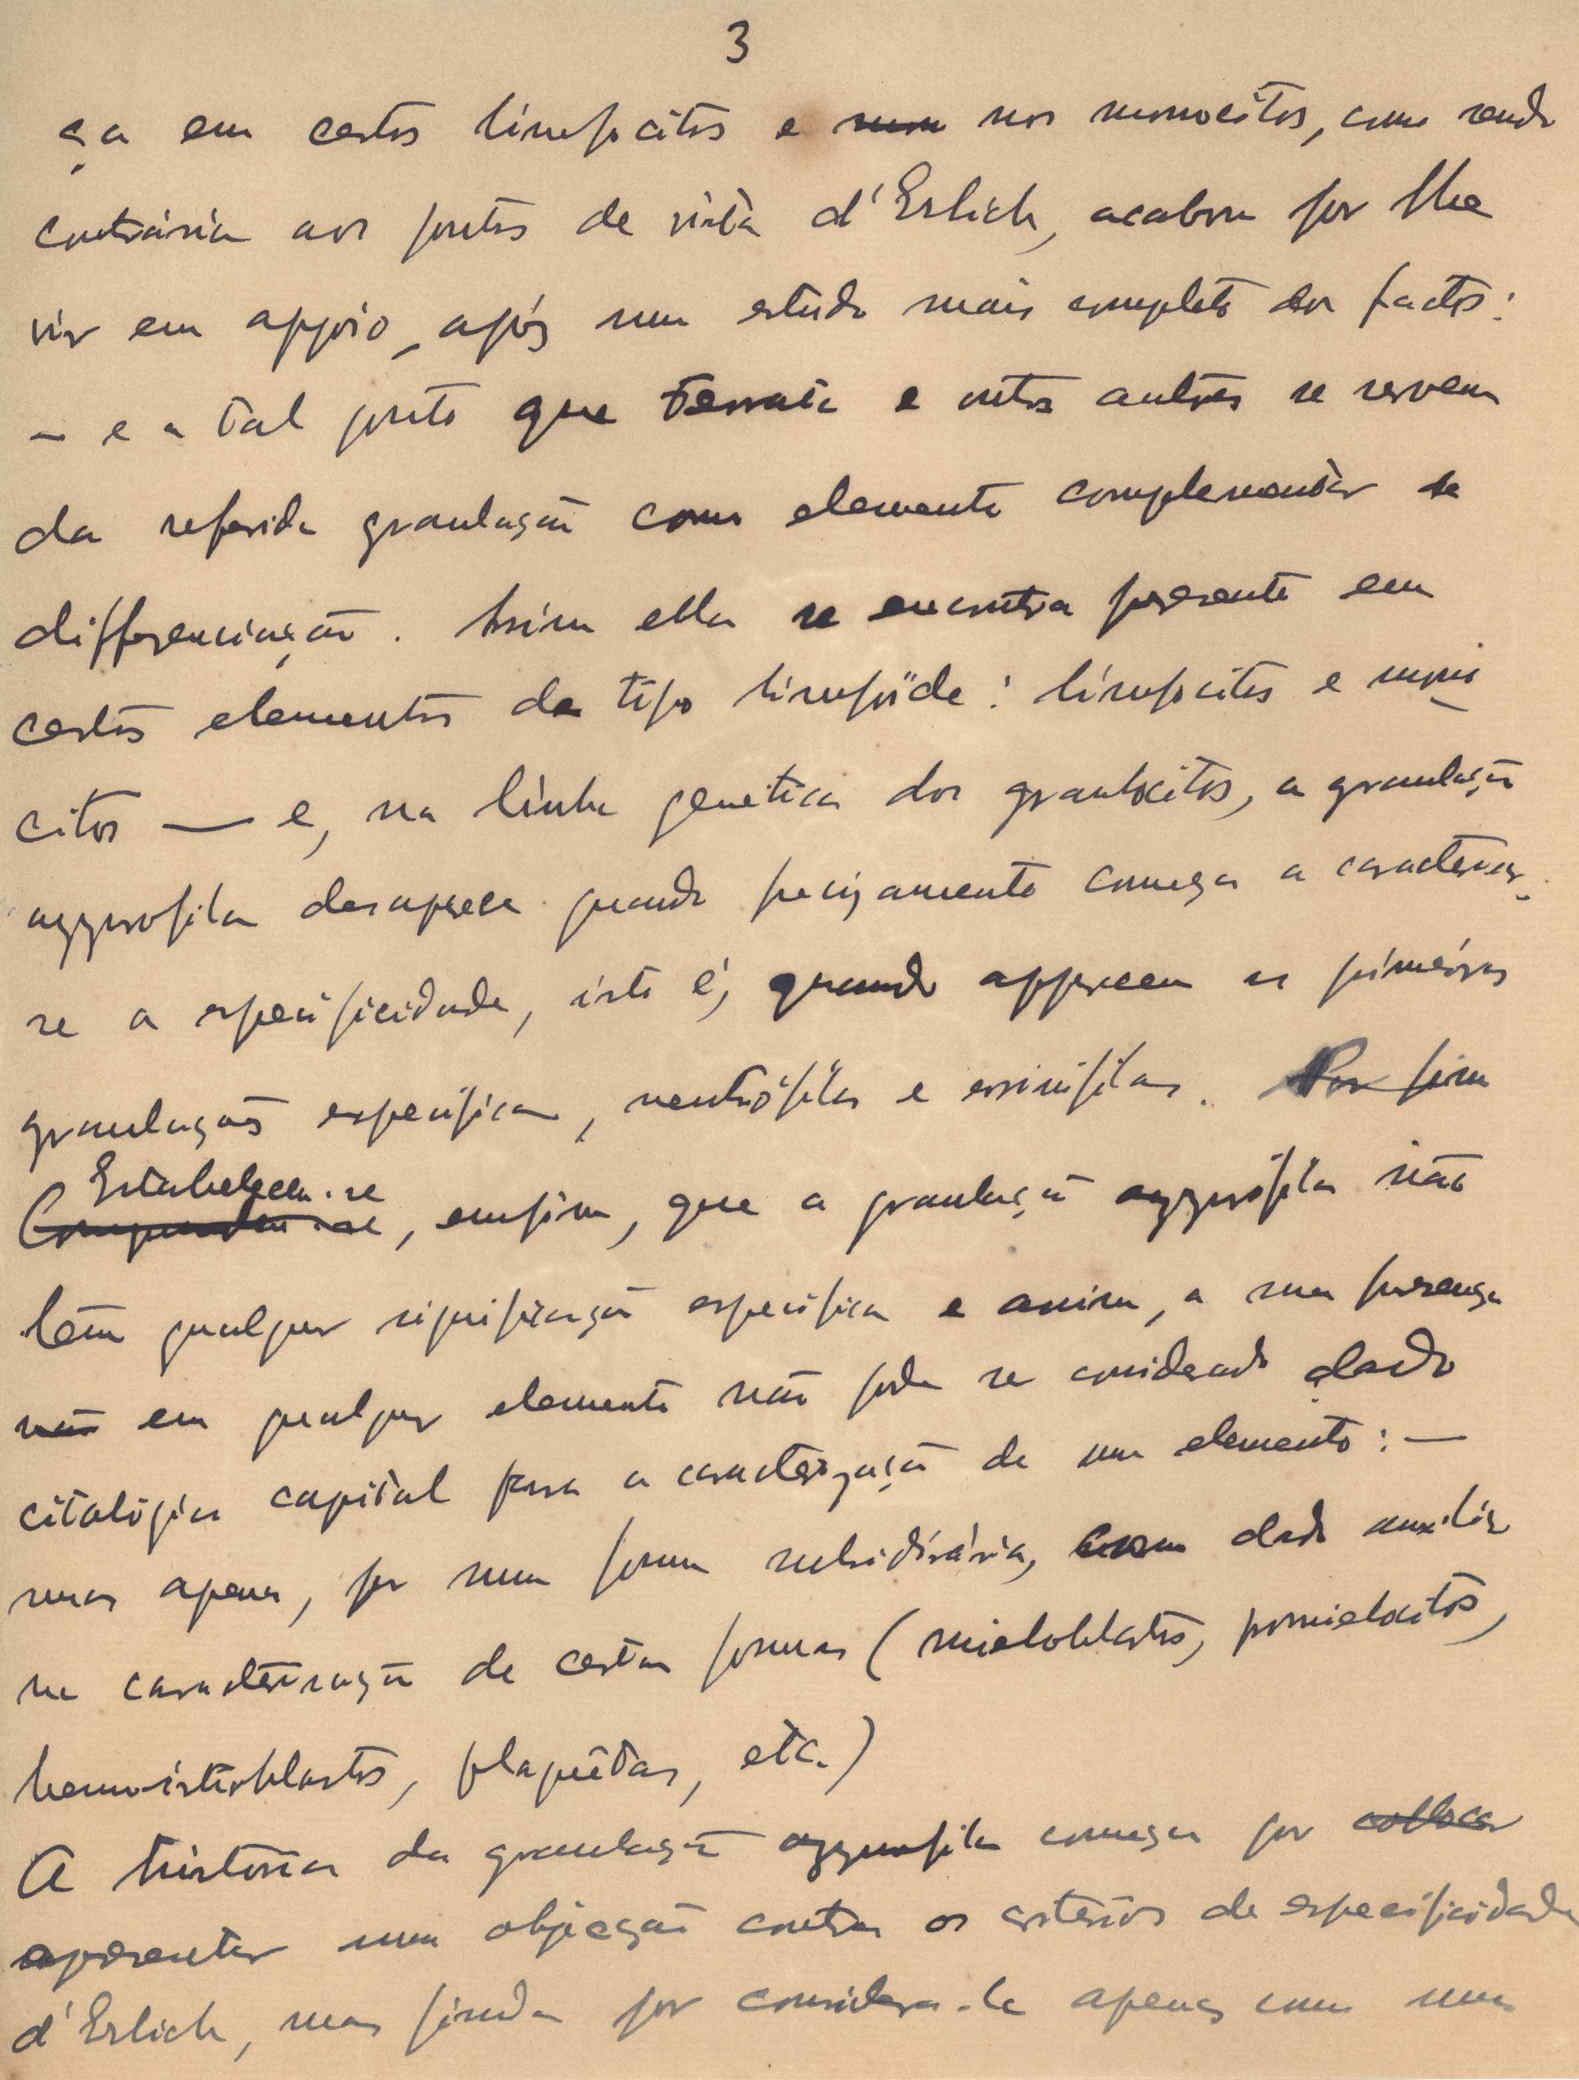 3
ça em certos linfocitos e nos monocitos, como sendo
contrária aos pontos de vista d'Erlich, acabou por lhe
vir em appoio, após um estudo mais completo dos factos:
— e a tal ponto que Ferrata e outros autores se servem
da referida granulação como elemento complementar de
differenciação. Assim ella se encontra presente em
certos elementos de tipo linfoïde: linfocitos e mono
citos — e, na linha genetica dos granulocitos, a granulação
azzurofila desaparece quando precizamente começa a caracterizar-
se a especificidade, isto é, quando apparecem as primeiras
granulações especificas, neutrófilas e eosinofilas. Por fim
Estabeleceu-se
, emfim, que a granulação azzurófila não
tem qualquer significação especifica e assim, a sua presença
não em qualquer elemento não pode ser considerado dado
citológico capital para a caracterização de um elemento: —
mas apenas, por uma forma subsidiária, como dado auxiliar
na caracterização de certas formas (mieloblastos, promielocitos,
hemo-istioblastos, plaquêtas, etc.)
A história da granulação azzurofila começa por collocar
apresentar uma objecção contra os criterios de especificidade
d'Erlich, mas finda por considera-la apenas como uma